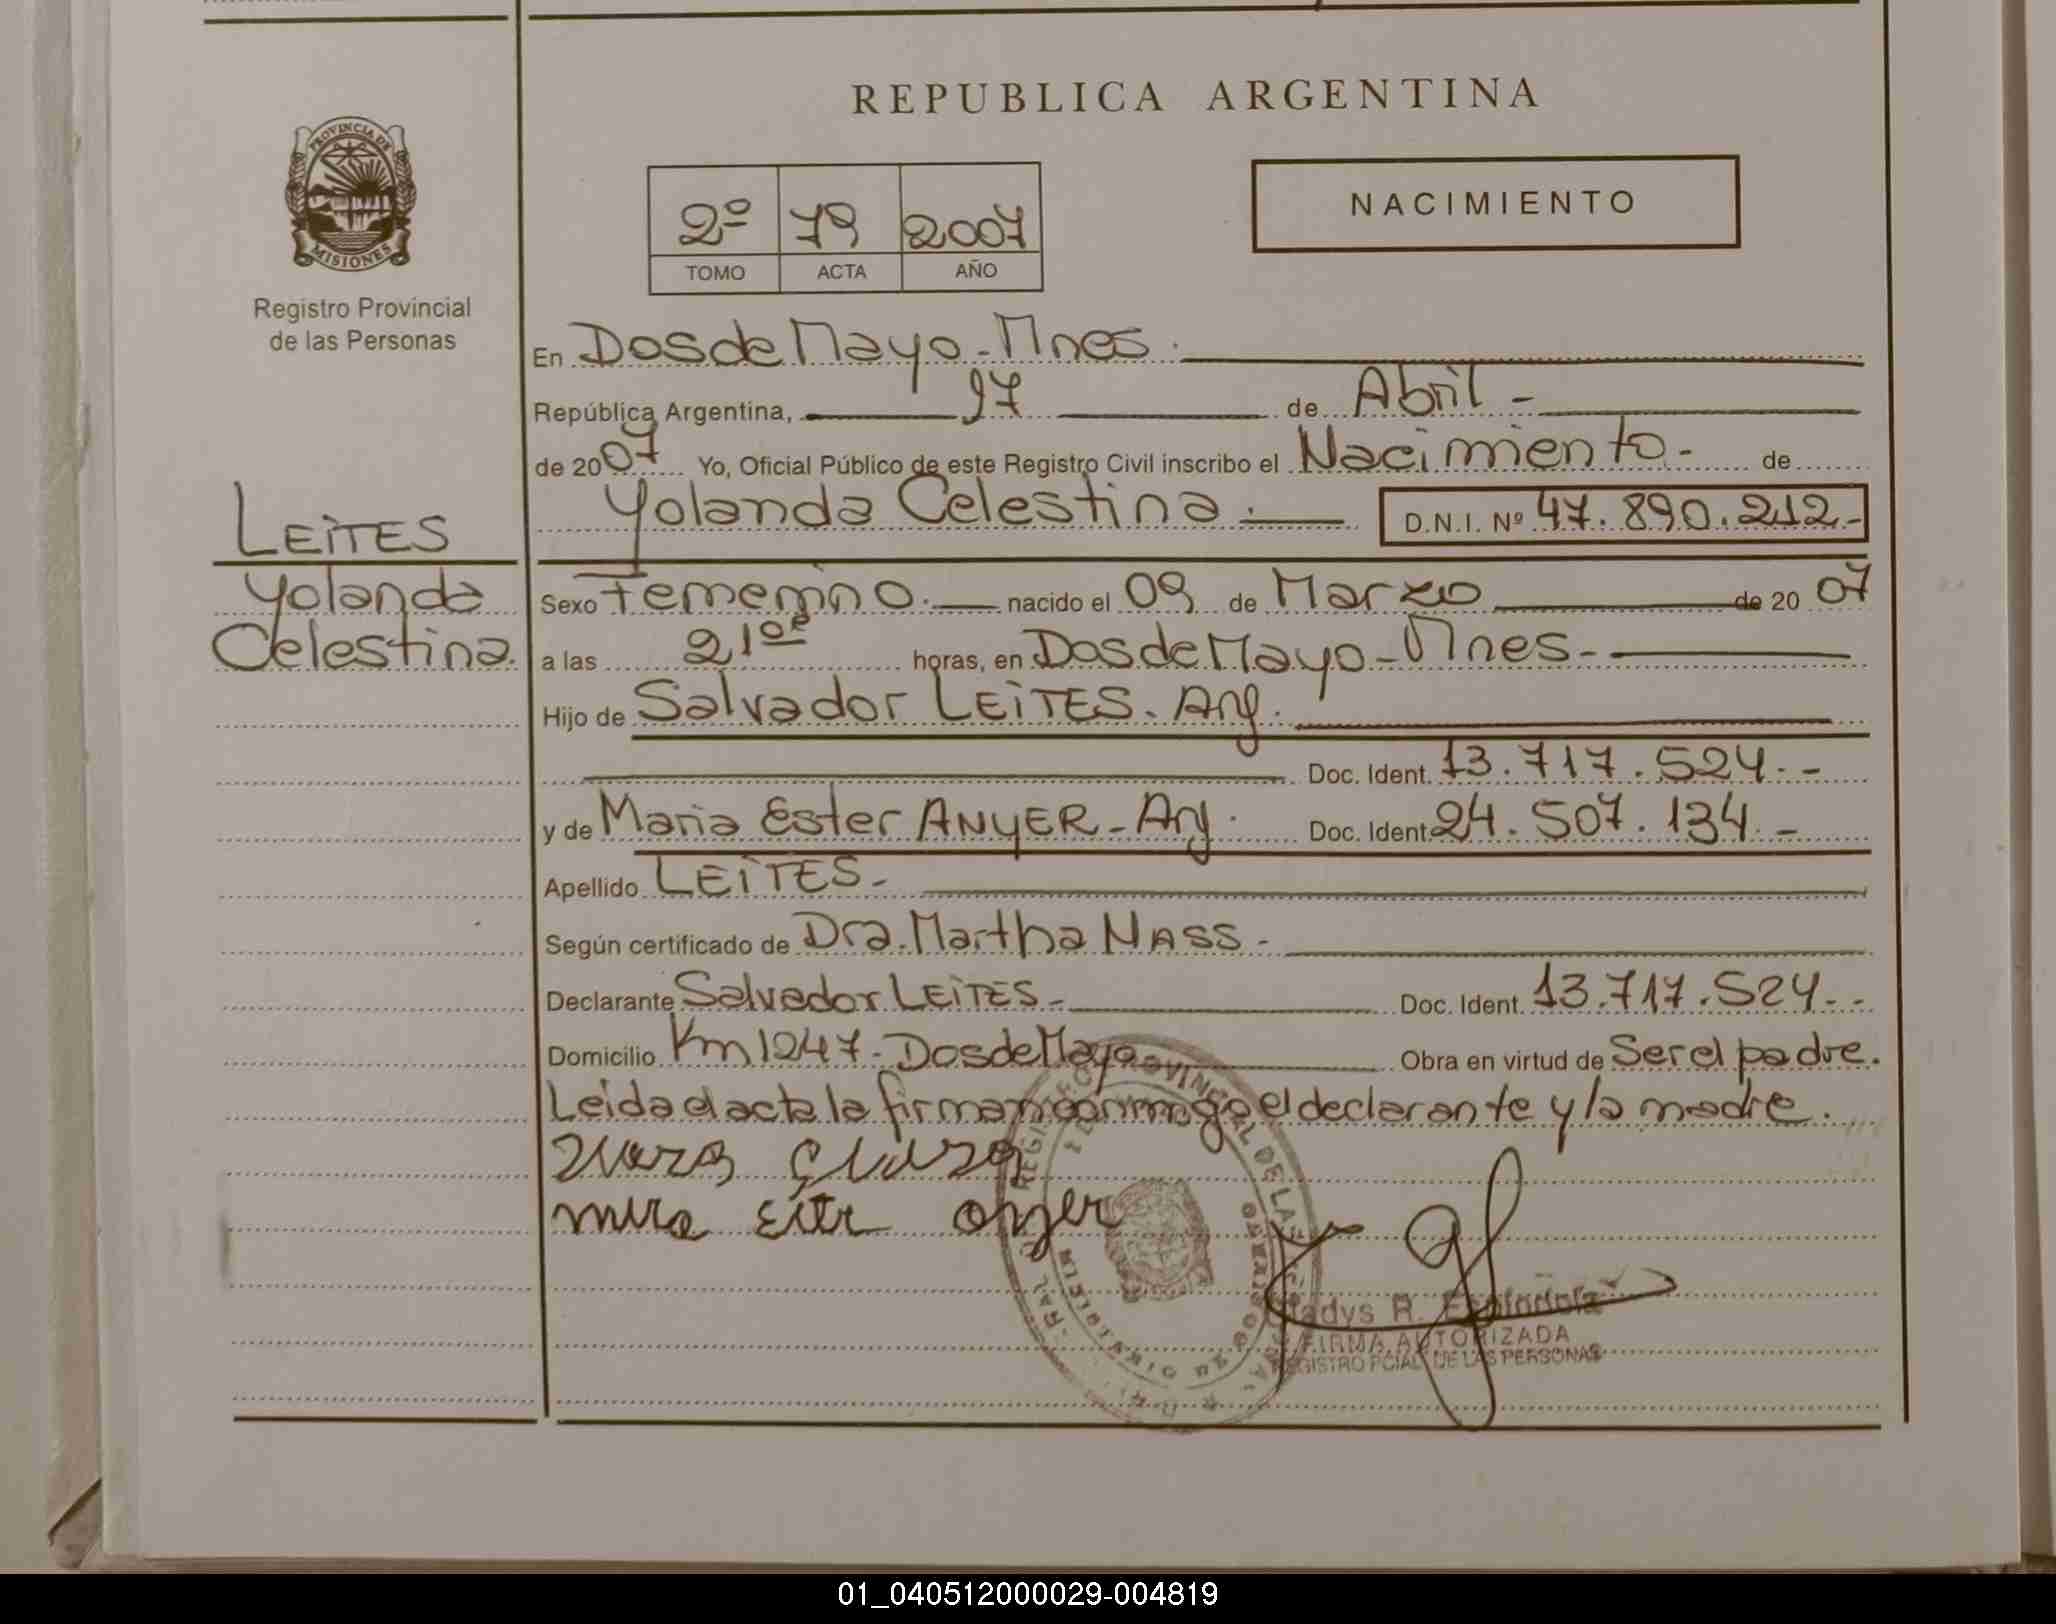 REPUBLICA ARGENTINA
PROVINCIA DE
MISIONES
Registro Provincial
de las Personas
2º 79 2007
TOMO ACTA AÑO
NACIMIENTO
En Dos de Mayo - Mnes.
República Argentina, 27 de Abril -
de 2007 Yo, Oficial Público de este Registro Civil inscribo el Nacimiento - de
Yolanda Celestina. D.N.I. Nº 47.890.212-
LEITES
Yolanda
Celestina.
Sexo Femenino. nacido el 09 de Marzo de 2007
a las 21 horas, en Dos de Mayo - Mnes -
Hijo de Salvador LEITES. Arg.
Doc. Ident. 13.717.524.-
y de Maria Ester ANYER - Arg. Doc. Ident. 24.507.134.-
Apellido LEITES-
Según certificado de Dra. Martha NASS -
Declarante Salvador LEITES- Doc. Ident. 13.717.524.-
Domicilio Km 1247 - Dos de Mayo Obra en virtud de Ser el padre.
Leida el acta la firman conmigo el declarante y la madre.
Gladys R. Espindola
FIRMA AUTORIZADA
REGISTRO PCIAL. DE LAS PERSONAS
01_040512000029-004819